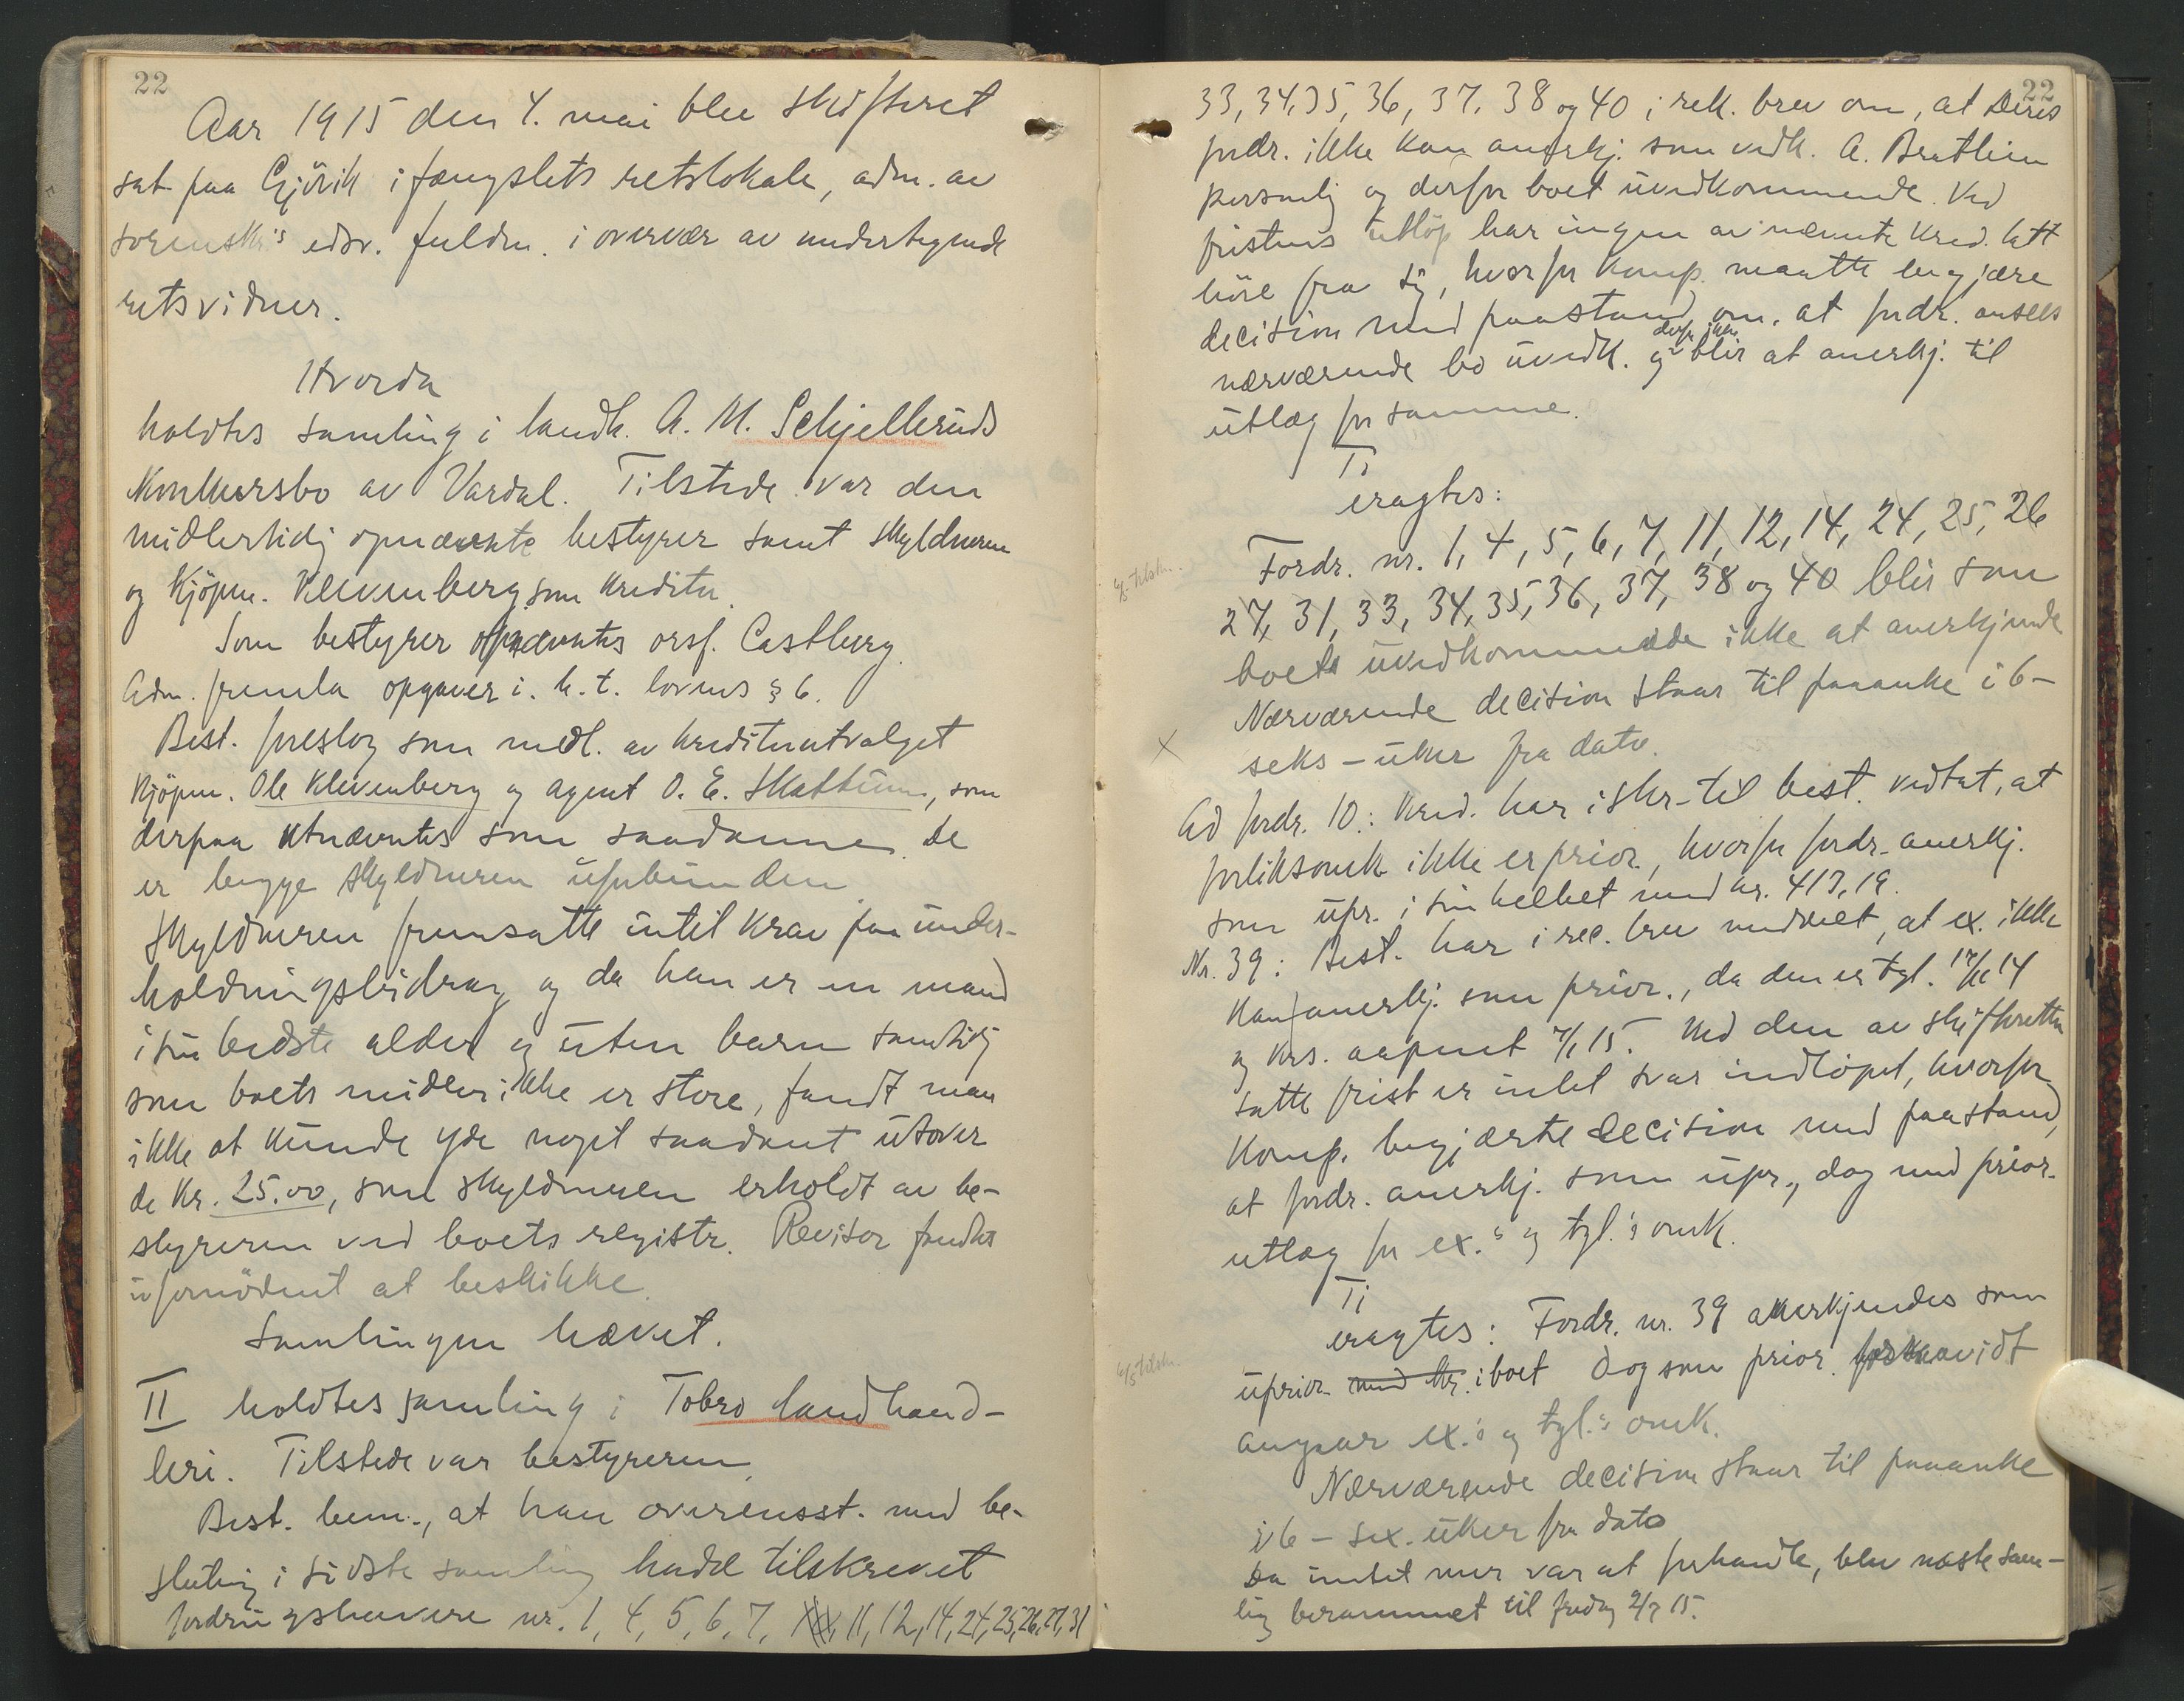 22
Aar 1915 den 4. mai blev skifteret
sat paa Gjövik i fængslets retslokale, adm. av
sorenskr's edsv. fuldm. i overvær av undertegnede
retsvidner.
Hvorda
holdtes samling i landh. A. M. Schjelleruds
Konkursbo av Vardal. Tilstede var den
midlertidig opnævnte bestyrer samt skyldneren
og Kjöpm. Klevenberg som kreditor.
Som bestyrer opnævntes orsf. Castberg.
Adm. fremla opgaver i. h. t. lovens § 6.
Best. foreslog som medl. av kreditorutvalget
Kjöpm. Ole Klevenberg og agent O. E. Skattum, som
derpaa utnævntes som saadanne. De
er begge skyldneren uforbunden.
Skyldneren fremsatte intet krav paa under-
holdningsbidrag og da han er en mand
i sin bedste alder og uten barn samtidig
som boets midler ikke er store, fandt man
ikke at kunde yde noget saadant utover
de kr. 25.00, som skyldneren erholdt av be-
styreren ved boets registr. Revisor fandtes
ufornödent at beskikke.
Samlingen hævet.
II holdtes samling i Tobro landhand-
leri. Tilstede var bestyreren.
Best. bem., at han overensst. med be-
slutning i sidste samling hadde tilskrevet
fordringshavere nr. 1, 4, 5, 6, 7, 11, 12, 14, 24, 25, 26, 27, 31
22
33, 34, 35, 36, 37, 38 og 40 i rek. brev om, at deres
fordr. ikke kan anerkj. som vedk. A. Bratlien
personlig og derfor boet uvedkommende. Ved
fristens utlöp har ingen av nævnte kred. latt
höre fra sig, hvorfor komp. maatte begjære
decision med paastand om, at fordr. ansees
derfor ikke
nærværende bo uvedk. og blir at anerkj. til
utlæg for samme.
Ti
eragtes:
6/5 tilskr.
Fordr. nr. 1, 4, 5, 6, 7, 11, 12, 14, 24, 25, 26
27, 31, 33, 34, 35, 36, 37, 38 og 40 blir som
boet uvedkommende ikke at anerkjende
Nærværende decision staar til paaanke i 6 –
seks – uker fra dato.
Ad fordr. 10: Kred. har i skr. til best. vedtat, at
forliksomk. ikke er prior., hvorfor fordr. anerkj.
som upr. i sin helhet med kr. 413,19.
Nr. 39: Best. har i rec. brev meddelt, at ex. ikke
kan anerkj. som prior., da den er tgl. 14
og krs. aapnet 15. Ved den av skifteretten
satte frist er intet svar indlöpet, hvorfor
komp. begjærte decision med paastand,
at fordr. anerkj. som upr., dog med prior.
utlæg for ex.'s og tgl.'s omk.
Ti
eragtes: Fordr. nr. 39 anerkjendes som
6/5 tilskr.
uprior. med kr. i boet dog som prior. forsaavidt
angaar ex.'s og tgl.'s omk.
Nærværende decision staar til paaanke
i 6 – sex. uker fra dato
Da intet mer var at forhandle, blev næste sam-
ling berammet til fredag 2/7 15.